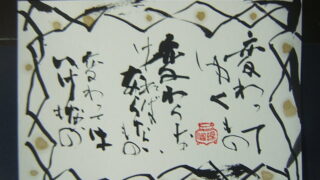 変わって
ゆくもの
変わらな
ければならないもの
かわっては
いけないもの